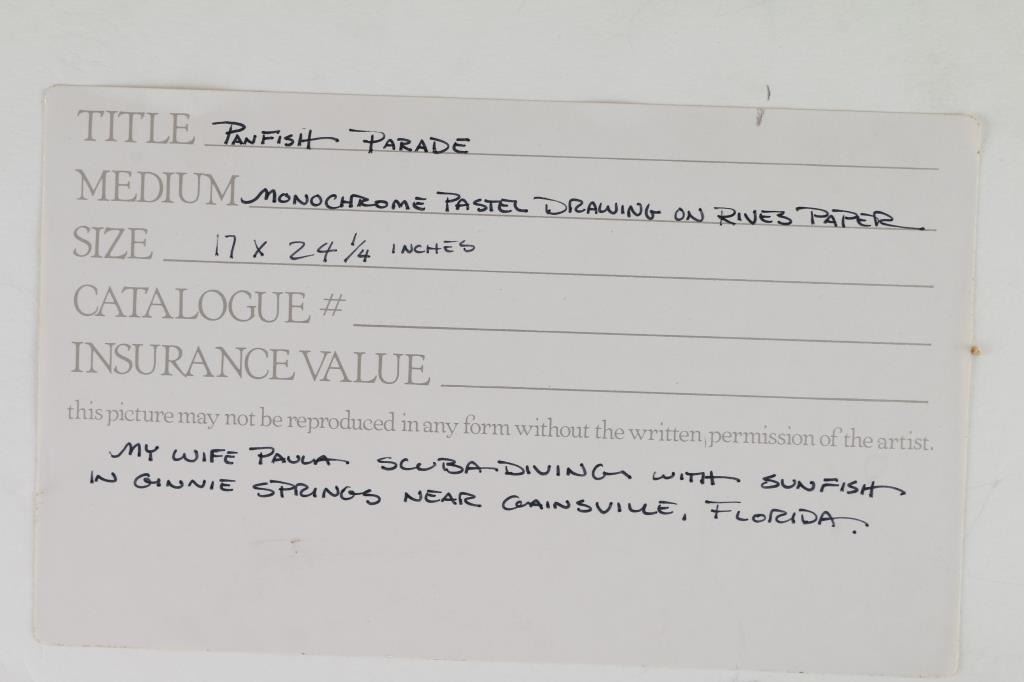 TITLE PANFISH PARADE
MEDIUM MONOCHROME PASTEL DRAWING ON RIVES PAPER.
SIZE 17 X 24 1/4 INCHES
CATALOGUE #
INSURANCE VALUE
this picture may not be reproduced in any form without the written permission of the artist.
MY WIFE PAULA SCUBA DIVING WITH SUNFISH
IN GINNIE SPRINGS NEAR GAINSVILLE, FLORIDA.